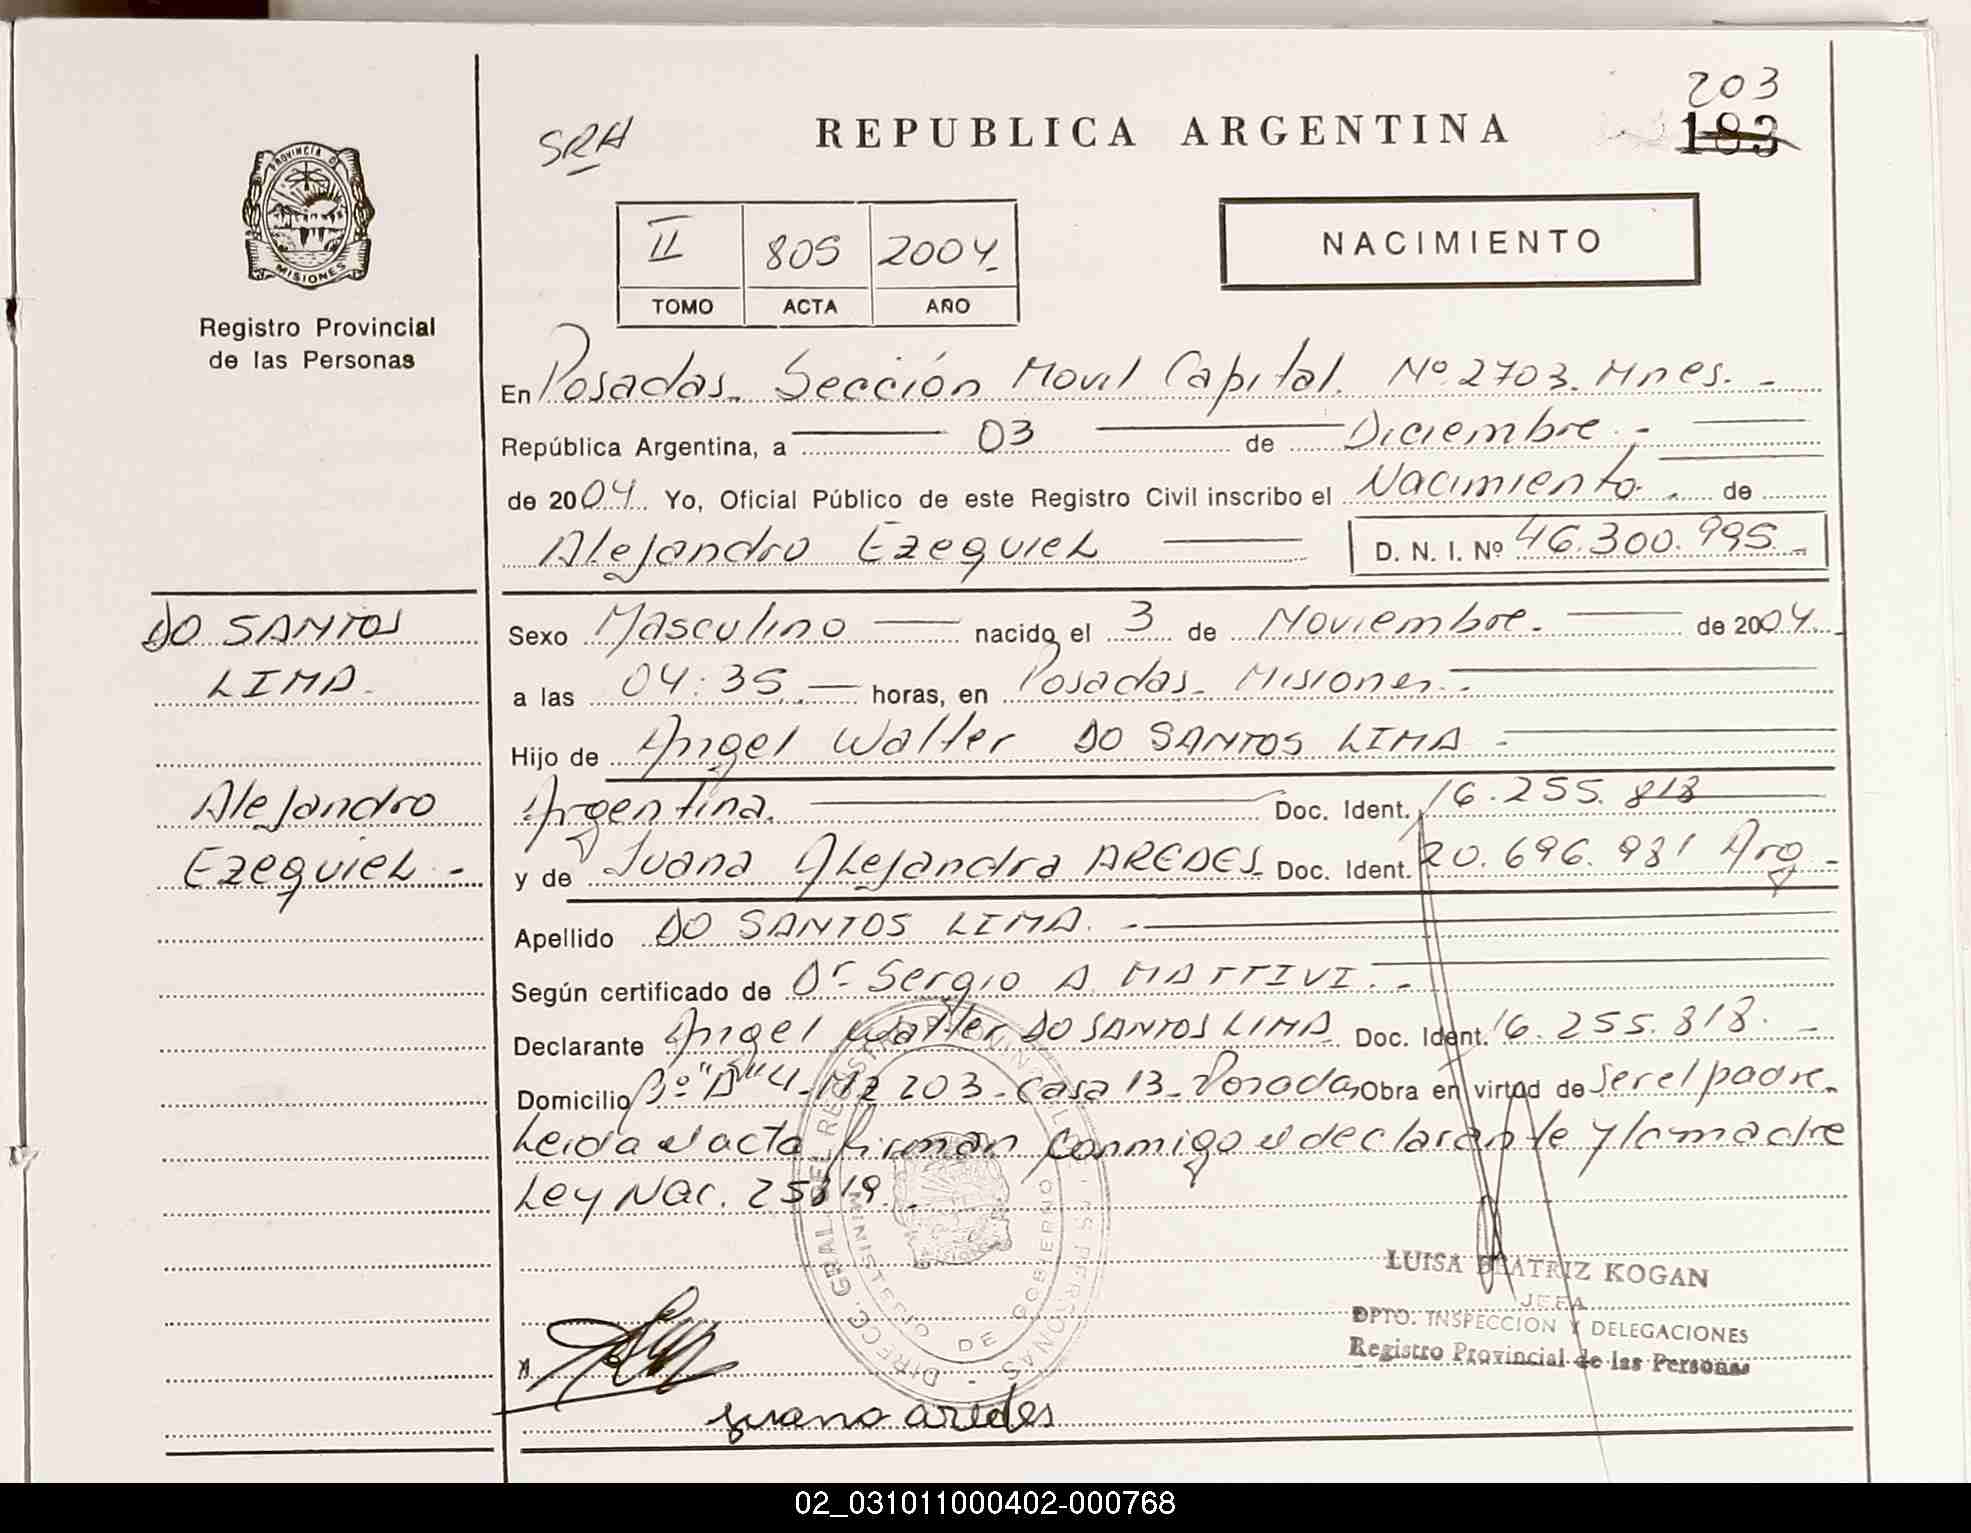 203
183
SRA
REPUBLICA ARGENTINA
PROVINCIA DE
MISIONES
Registro Provincial
de las Personas
II 805 2004
TOMO ACTA AÑO
NACIMIENTO
En Posadas. Sección Movil Capital. Nº 2703. Mnes.-
República Argentina, a 03 de Diciembre.-
de 2004. Yo, Oficial Público de este Registro Civil inscribo el Nacimiento. de
Alejandro Ezequiel D. N. I. Nº 46.300.995.-
DO SANTOS
LIMA.
Alejandro
Ezequiel.-
Sexo Masculino nacido el 3 de Noviembre. de 2004.
a las 04:35. horas, en Posadas. Misiones.-
Hijo de Angel Walter DO SANTOS LIMA -
Argentina. Doc. Ident. 16.255.818
y de Juana Alejandra AREDES. Doc. Ident. 20.696.981 Arg -
Apellido DO SANTOS LIMA. -
Según certificado de Dr. Sergio A. MATTIVI.-
Declarante Angel Walter DO SANTOS LIMA Doc. Ident. 16.255.818. -
Domicilio Bº "A" 4. Mz 203 - Casa 13 - Posadas Obra en virtud de ser el padre.
Leida el acta firman conmigo el declarante y la madre
Ley Nac. 25819.
DIRECC. GRAL. DEL REGISTRO PERSONAS
MINISTERIO DE GOBIERNO
LUISA BEATRIZ KOGAN
JEFA
DPTO. INSPECCION Y DELEGACIONES
Registro Provincial de las Personas
Juana aredes
02_031011000402-000768